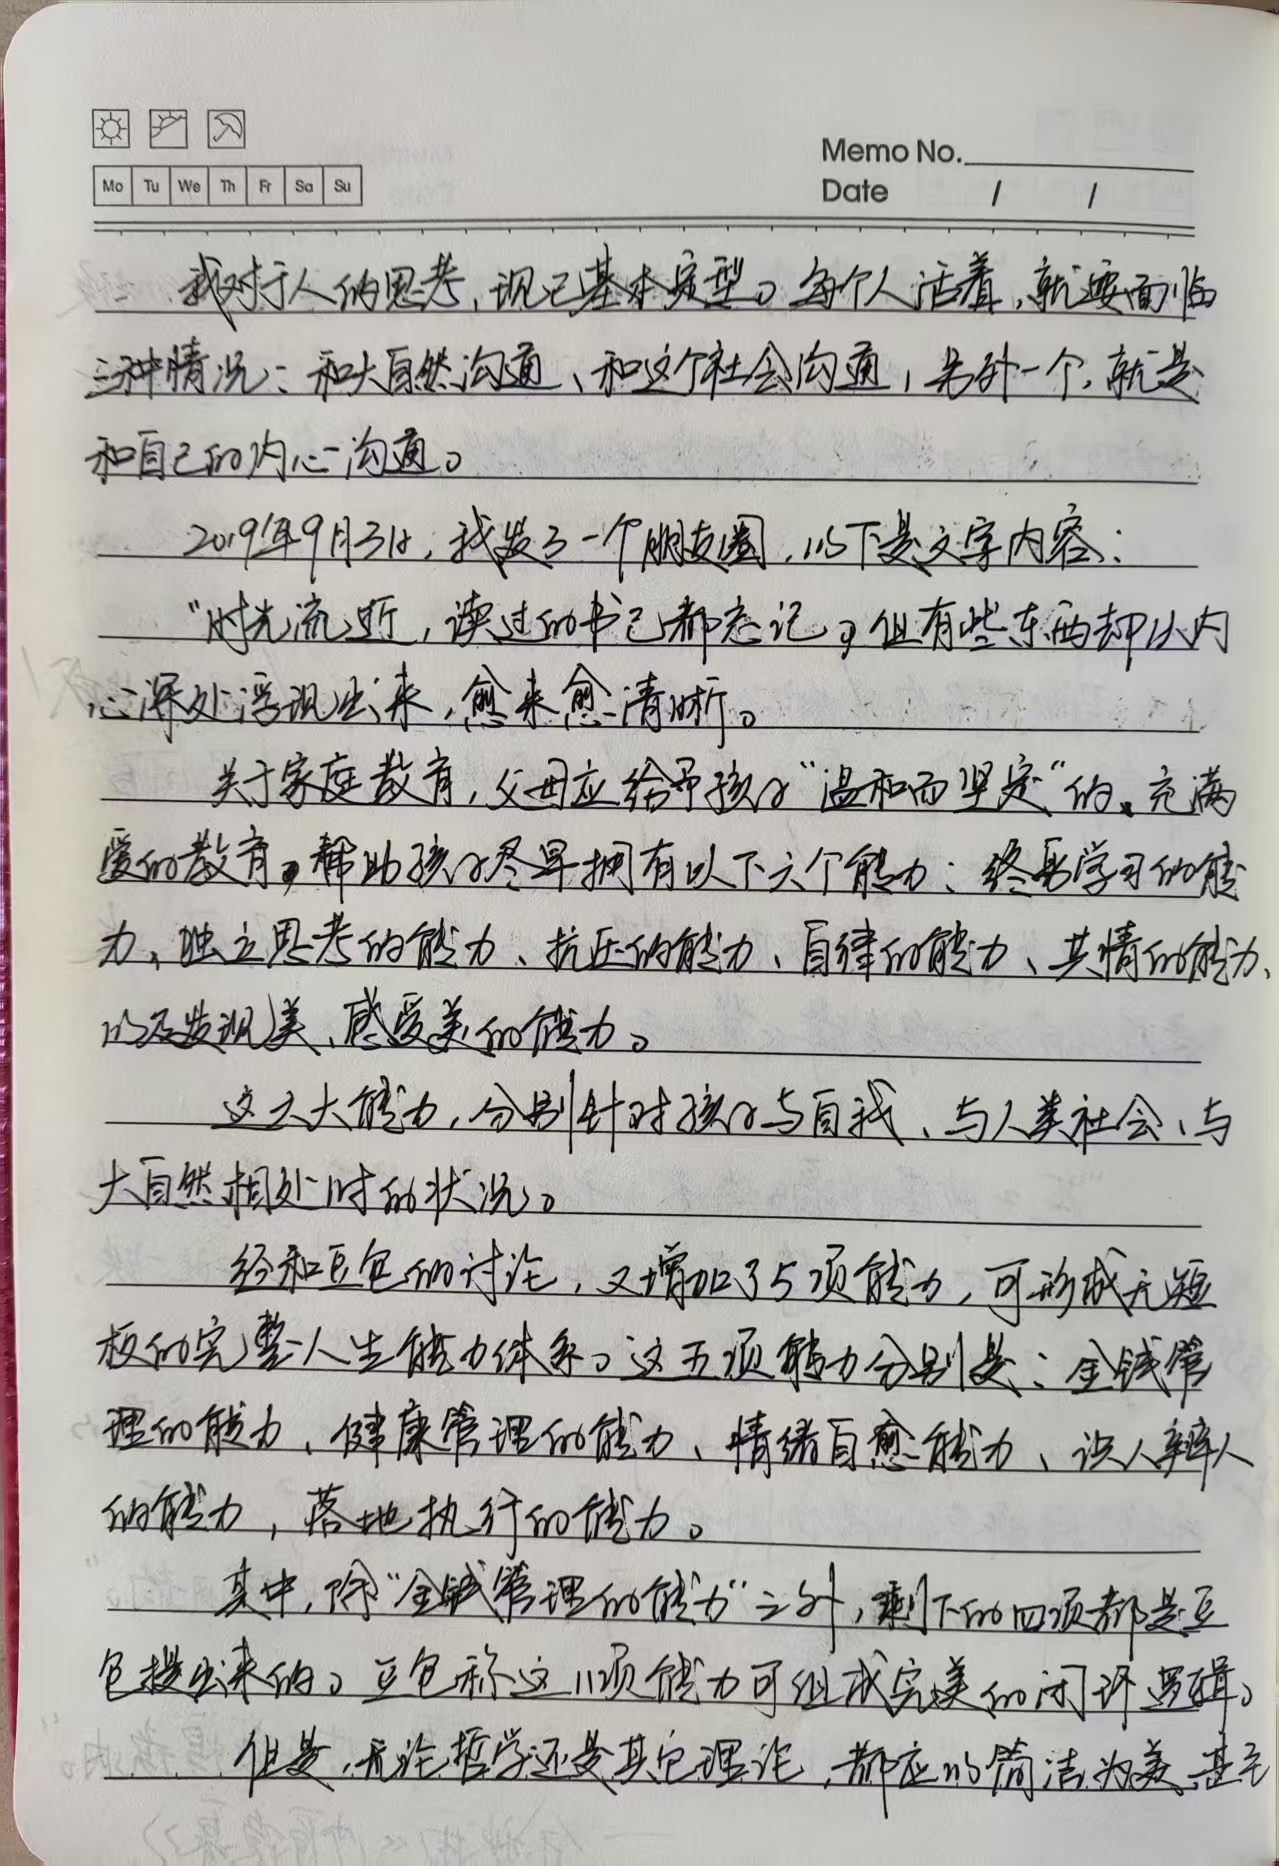 Memo No.
Mo Tu We Th Fr Sa Su
Date / /
我对于人的思考，现已基本定型。每个人活着，就要面临
三种情况：和大自然沟通、和这个社会沟通，另外一个，就是
和自己的内心沟通。
2019年9月3日，我发了一个朋友圈，以下是文字内容：
“时光流逝，读过的书已都忘记，但有些东西却从内
心深处浮现出来，愈来愈清晰。
关于家庭教育，父母应给予孩子“温和而坚定”的、充满
爱的教育，帮助孩子尽早拥有以下六个能力：终身学习的能
力、独立思考的能力、抗压的能力、自律的能力、共情的能力、
以及发现美、感受美的能力。
这六大能力，分别针对孩子与自我、与人类社会、与
大自然相处时的状况。
经和豆包的讨论，又增加了5项能力，可形成无短
板的完整人生能力体系。这五项能力分别是：金钱管
理的能力、健康管理的能力、情绪自愈能力、识人辨人
的能力，落地执行的能力。
其中，除“金钱管理的能力”之外，剩下的四项都是豆
包提出来的。豆包称这11项能力可组成完美的闭环逻辑。
但是，无论哲学还是其它理论，都应以简洁为美，甚至